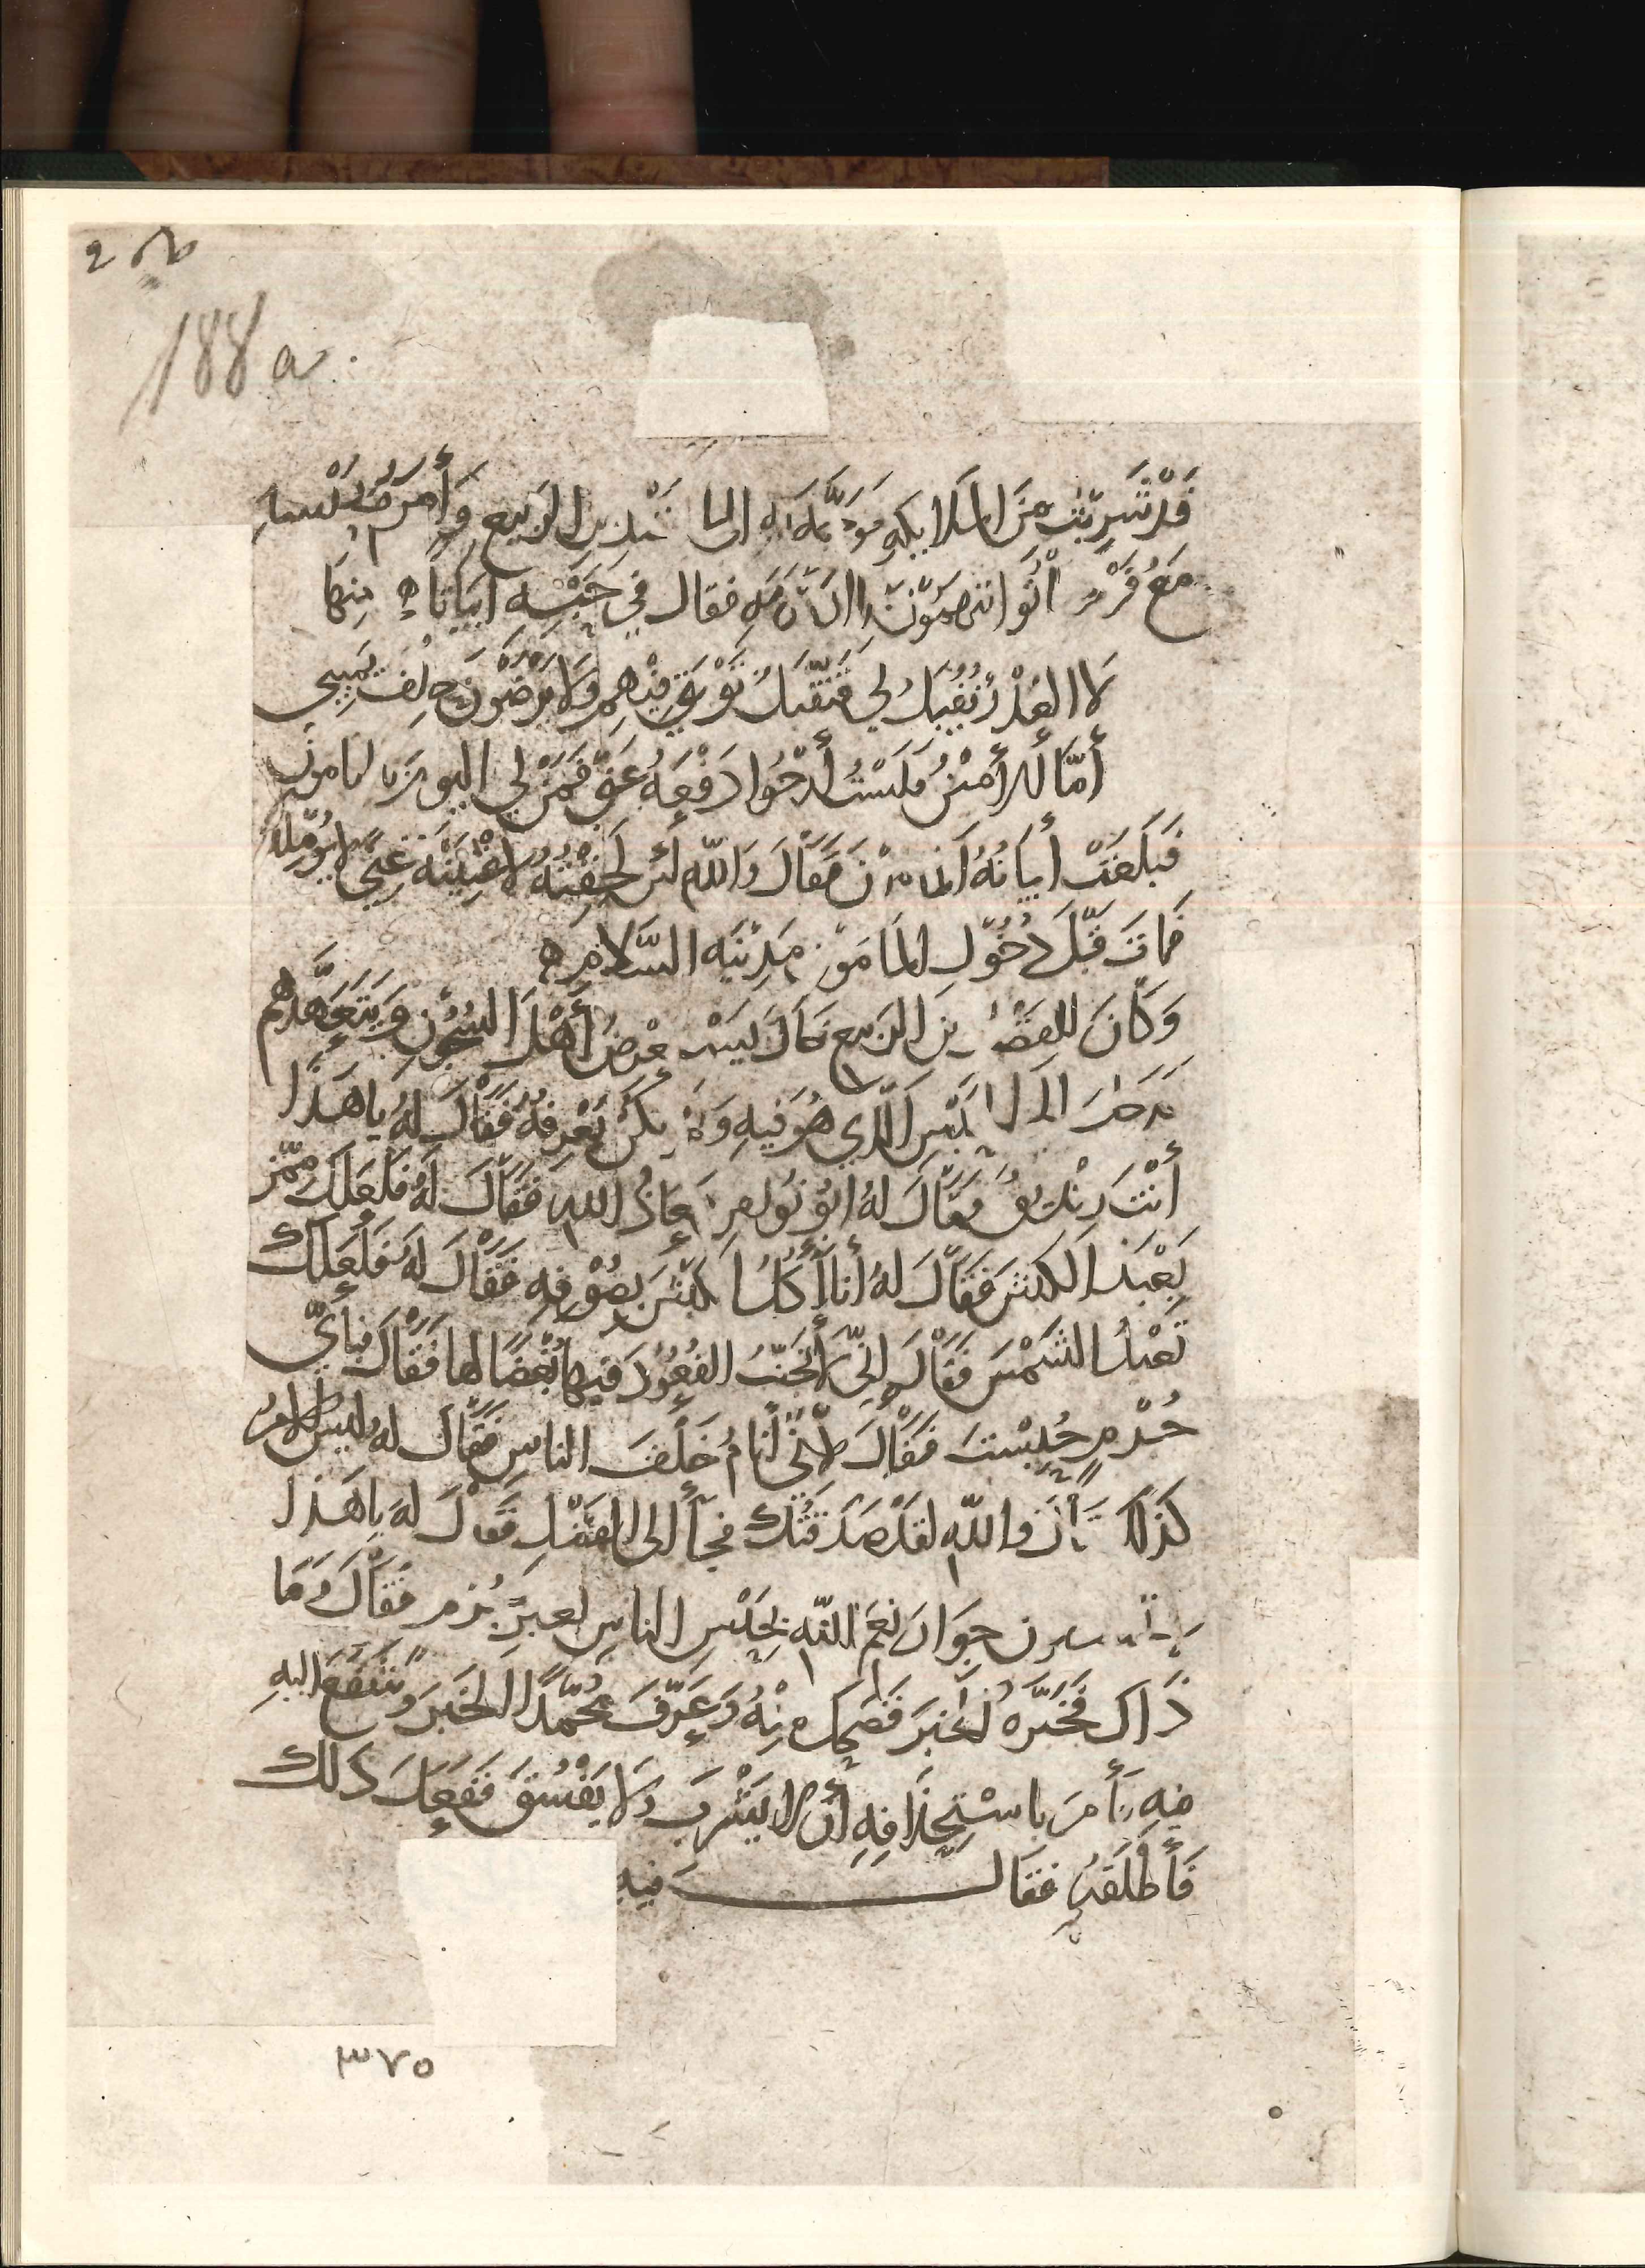 188 a.
قَدْ شَرِبْتُ مِنَ الملايكهِ ... الى ... الرَبيع وَأَمَرَ بحَبْسه
مَعُ ... فقال في حَبْسِهِ ابيَاتاً ه مِنهَا
لَا العُذْرُ يُقْبَلُ لِي فَتُقْبَلُ تَوْبَتي فيْهِم وَلَا يَرْضَوْنَ حِلْفَ يَمِيني
أَمّا الأَمِيْنُ فَلَسْتُ أَرْجُوا دَفْعَهُ عَنّي فَمَنْ لي اليومَ بالمامونِ
فَبَلَغَتْ أَبيَاتُهُ المَامونَ فَقَالَ وَاللّهِ لَئن لَحِقْتُهُ لَاغْنِيَنَّهُ غِنًى لايُؤمّلهُ
فماتَ قَبْلَ دُخُوْلِ المَامَونِ مَدِيْنَة السَّلَامِ ه
وَكَانَ للفَضْلِ بن الرَبيع خَالٌ يَسْتعْرِضُ أَهْلَ السُجُوْنِ وَيَتَعَهَّدُهم
فدَخلَ الى الحَبْسِ الَّذي هُوَ فيهِ وَلَمْ يكُنْ يَعْرِفُهُ فَقَالَ لهُ ياهَذَا
أَنْتَ زِنْدِيقٌ فَقَالَ لهُ ابُو نُوَاس مَعَاذَ اللهِ فَقَالَ لهُ فَلَعَلَّكَ مِمَّنْ
يَعْبَدُ الكبْشَ فَقَالَ لهُ أَنا أَأكُلُ الكبْشَ بِصُوْفِهِ فَقَالَ لهُ فَلَعَلَّكَ
تَعْبُدُ الشَمْسَ فَقَالَ إِنّي لأَتجَنّبُ القُعُوْدَ فيها بُغْضًا لها فَقَال فبأَيِّ
جُرْمٍ حُبِسْتَ فَقَالَ لأنّي أَنَامُ خَلْفَ الناسِ فَقَالَ لهُ ليسَ الامرُ
كذلكَ ... واللّهِ لقدْ صَدَقتُكَ فجأَ الى الفَضْلِ فَقَالَ لهُ ياهَذَا
... جِوَارَ نِعَمِ اللّهِ بحَبْسِ الناسِ لغيرِ جُرْمٍ فَقَالَ وَمَا
ذَاكَ فَخَبَّرَهُ الخَبَرَ فَضَحِكَ مِنْهُ وَعَرَّفَ مُحَمَّدًا الخَبَرَ وَشَفَعَ اليهِ
فيهِ فأَمرَ باسْتِحْلَافِهِ أَن لا يَشْرَبَ وَلَا يَفْسُقَ فَفَعَلَ ذَلكَ
فَأَطْلَقَهُ فقال فيهِ
٣٧٥